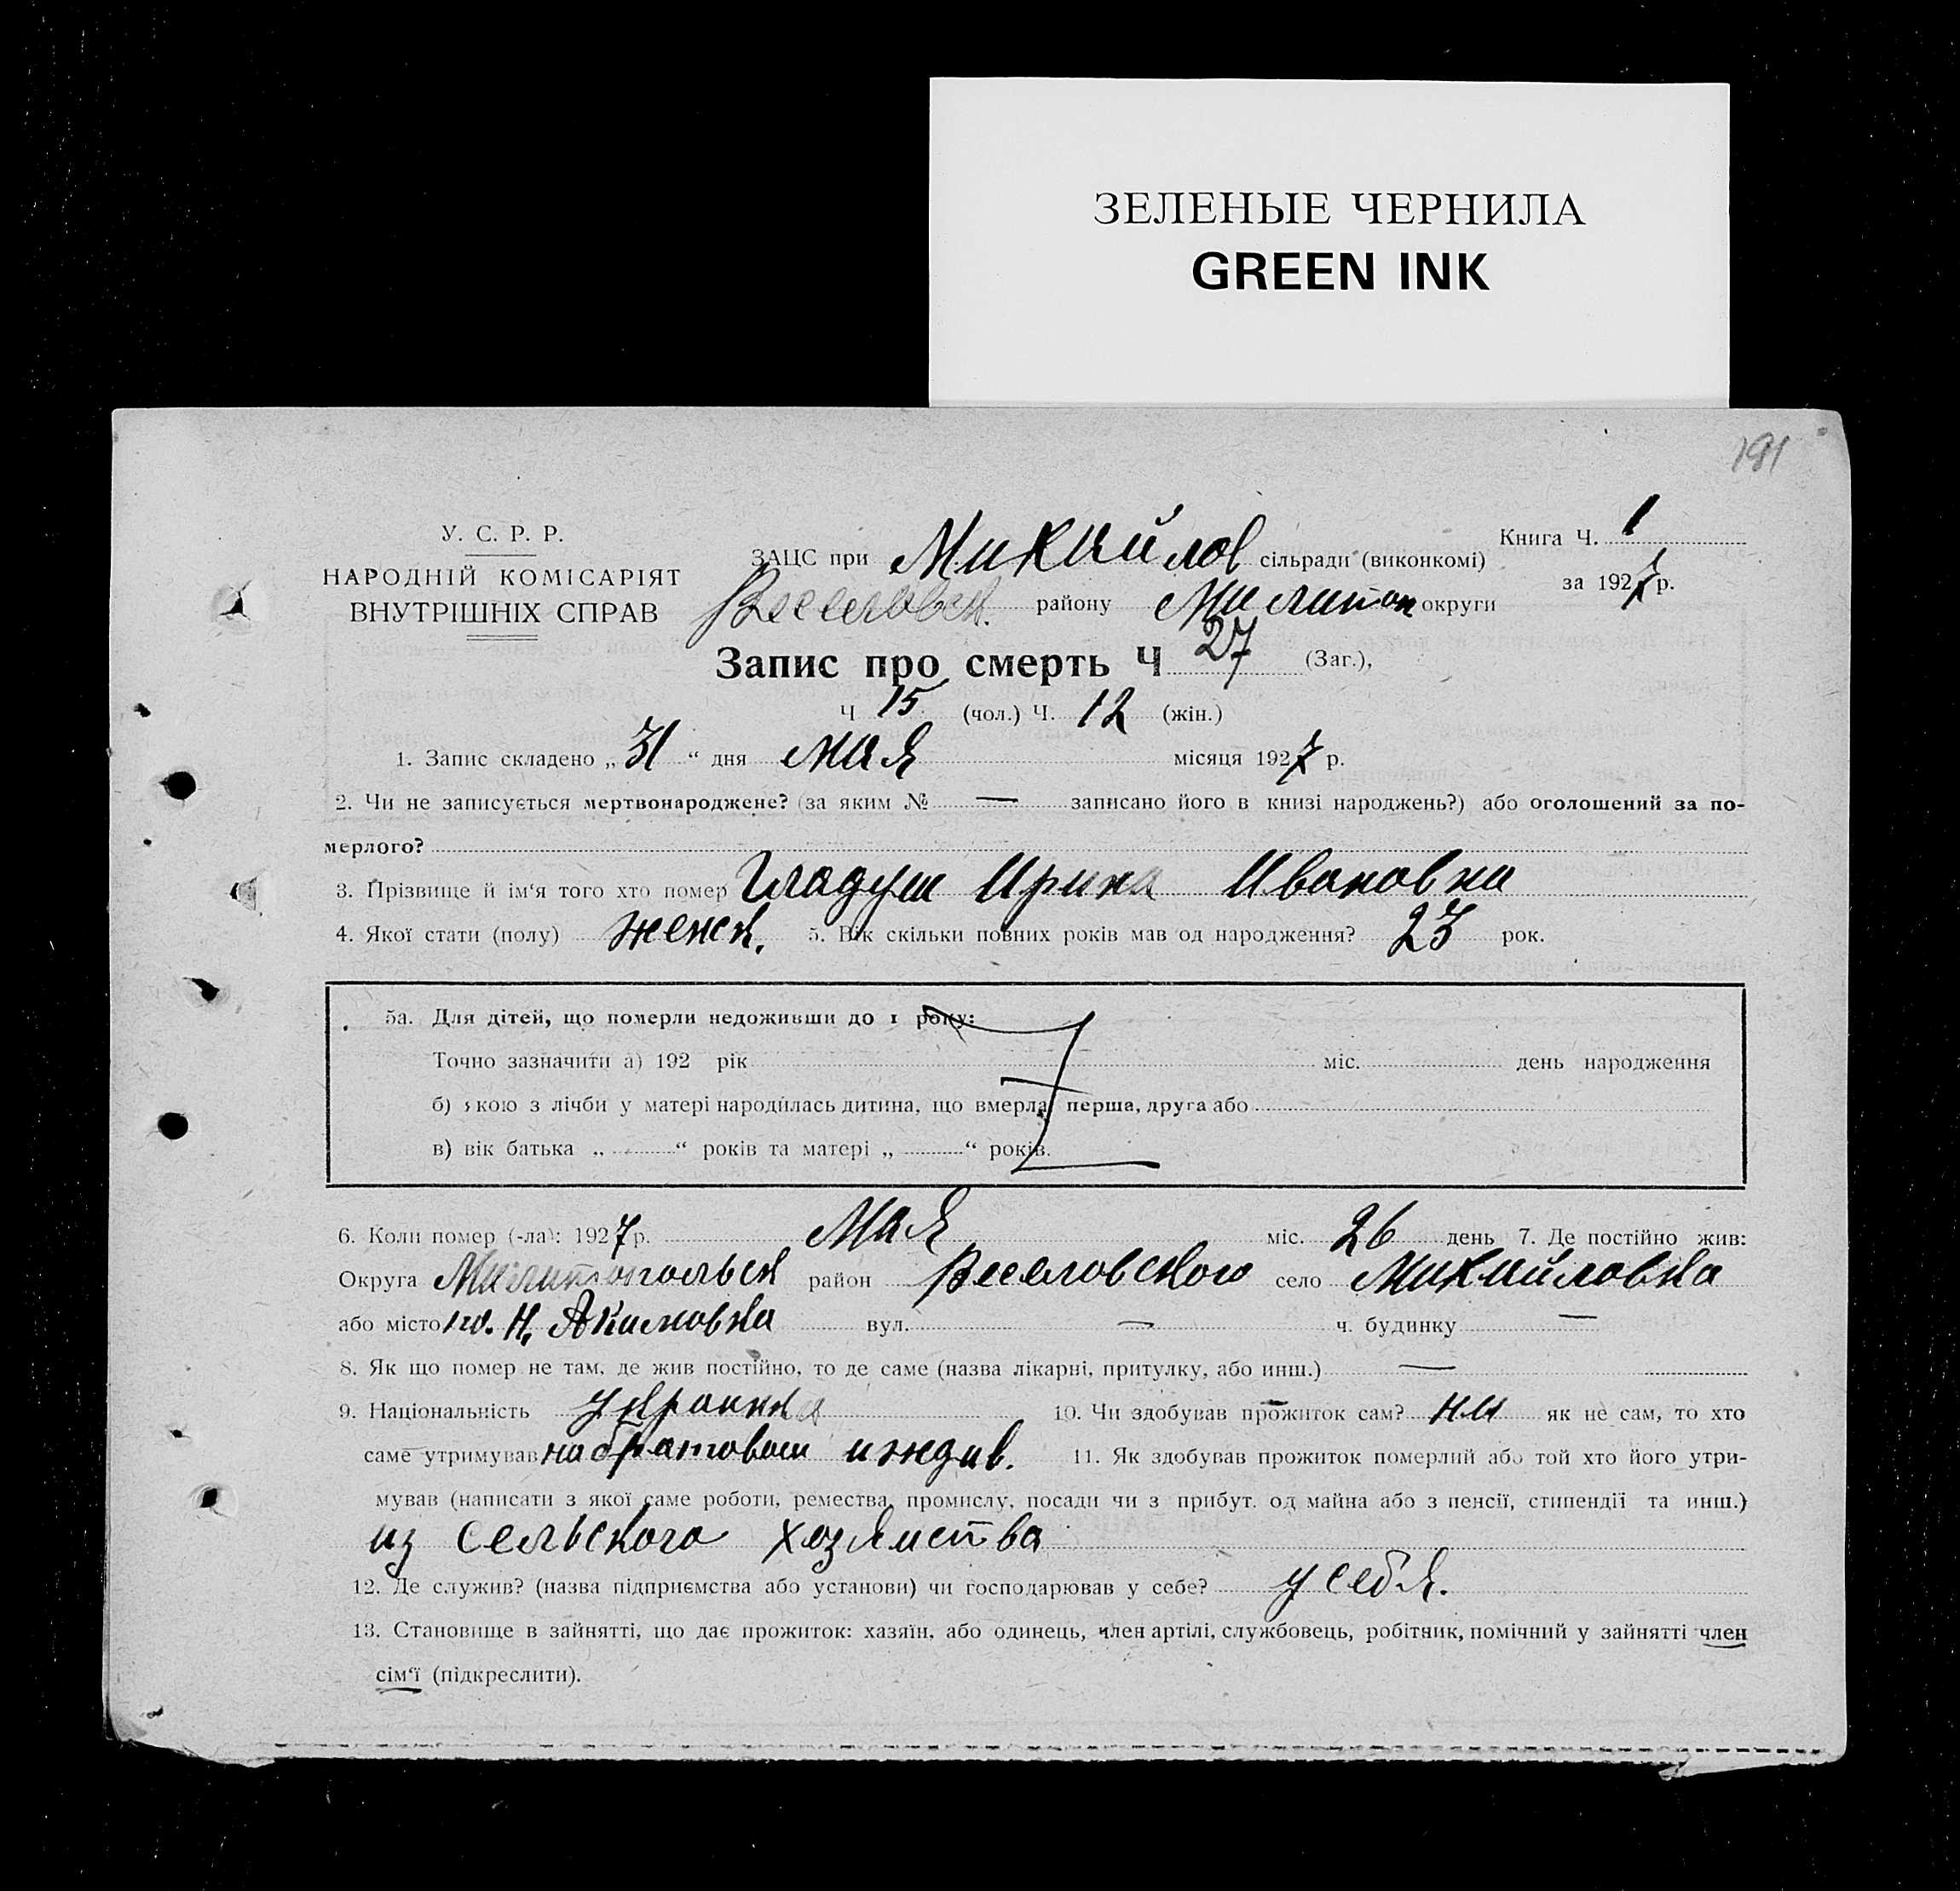 ЗЕЛЕНЫЕ ЧЕРНИЛА
GREEN INK
191
У. С. Р. Р.
НАРОДНІЙ КОМІСАРІЯТ
ВНУТРІШНІХ СПРАВ
ЗАЦС при Михайлов сільради (виконкомі)
Книга Ч. 1
за 1927 р.
Веселовск. району Милитоп округи
Запис про смерть Ч 27 (Заг.),
Ч 15 (чол.) Ч. 12 (жін.)
1. Запис складено „ 31 “ дня мая місяця 1927 р.
2. Чи не записується мертвонароджене? (за яким № — записано його в книзі народжень?) або оголошений за по-
мерлого?
3. Прізвище й ім'я того хто помер Гладуш Ирина Ивановна
4. Якої стати (полу) женск. 5. Вік скільки повних років мав од народження? 23 рок.
5а. Для дітей, що померли недоживши до 1 року:
Точно зазначити а) 192 рік міс. день народження
б) якою з лічби у матері народилась дитина, що вмерла, перша, друга або
в) вік батька „ “ років та матері „ “ років.
6. Коли помер (-ла): 1927 р. Мая міс. 26 день 7. Де постійно жив:
Округа Милитопольск район Веселовского село Михайловка
або місто Н. Акимовка вул. — ч. будинку —
8. Як що помер не там, де жив постійно, то де саме (назва лікарні, притулку, або инш.) —
9. Національність украинка 10. Чи здобував прожиток сам? як не сам, то хто
саме утримував на братовом иждив. 11. Як здобував прожиток померлий або той хто його утри-
мував (написати з якої саме роботи, ремества, промислу, посади чи з прибут. од майна або з пенсії, стипендії та инш.)
из сельского хозяиства
12. Де служив? (назва підприємства або установи) чи господарював у себе? у себя.
13. Становище в зайнятті, що дає прожиток: хазяїн, або одинець, член артілі, службовець, робітник, помічний у зайнятті член
сім'ї (підкреслити).